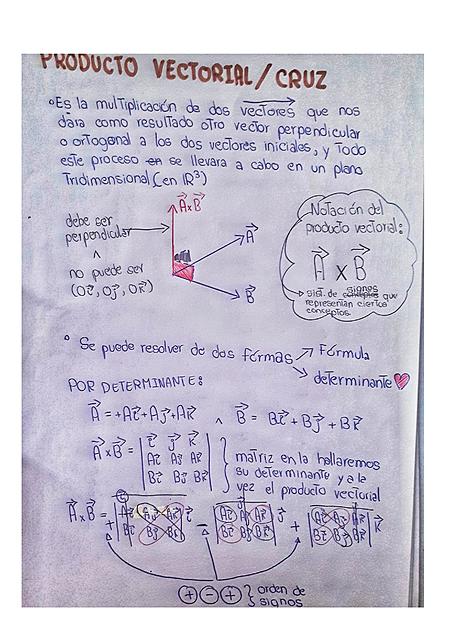 PRODUCTO VECTORIAL/CRUZ
°Es la multiplicación de dos vectores que nos
dara como resultado otro vector perpendicular
o ortogonal a los dos vectores iniciales, y todo
este proceso en se llevara a cabo en un plano
Tridimensional (en IR³)
debe ser
perpendicular
^
no puede ser
(0i⃗, 0j⃗, 0k⃗)
A⃗xB⃗
A⃗
B⃗
Notación del
producto vectorial:
A⃗ x B⃗
→ sist. de signos que
representan ciertos
conceptos
° Se puede resolver de dos formas → Fórmula
→ determinante
POR DETERMINANTE:
A⃗ = +Ai⃗ + Aj⃗ + Ak⃗ ^ B⃗ = Bi⃗ + Bj⃗ + Bk⃗
A⃗xB⃗ = | i⃗ j⃗ k⃗ |
| Ai Aj Ak |
| Bi Bj Bk |
matriz en la hallaremos
su determinante y a la
vez el producto vectorial
A⃗xB⃗ = + | Ai Aj Ak | i⃗ - | Ai Aj Ak | j⃗ + | Ai Aj Ak | k⃗
| Bi Bj Bk | | Bi Bj Bk | | Bi Bj Bk |
+ - + } orden de
signos